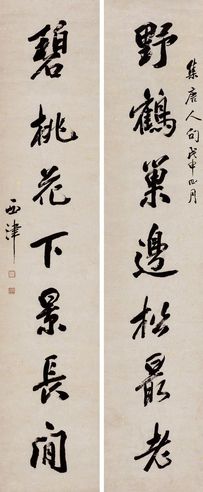 集唐人句戊申四月
野鶴巢邊松最老
碧桃花下景長閒
西津